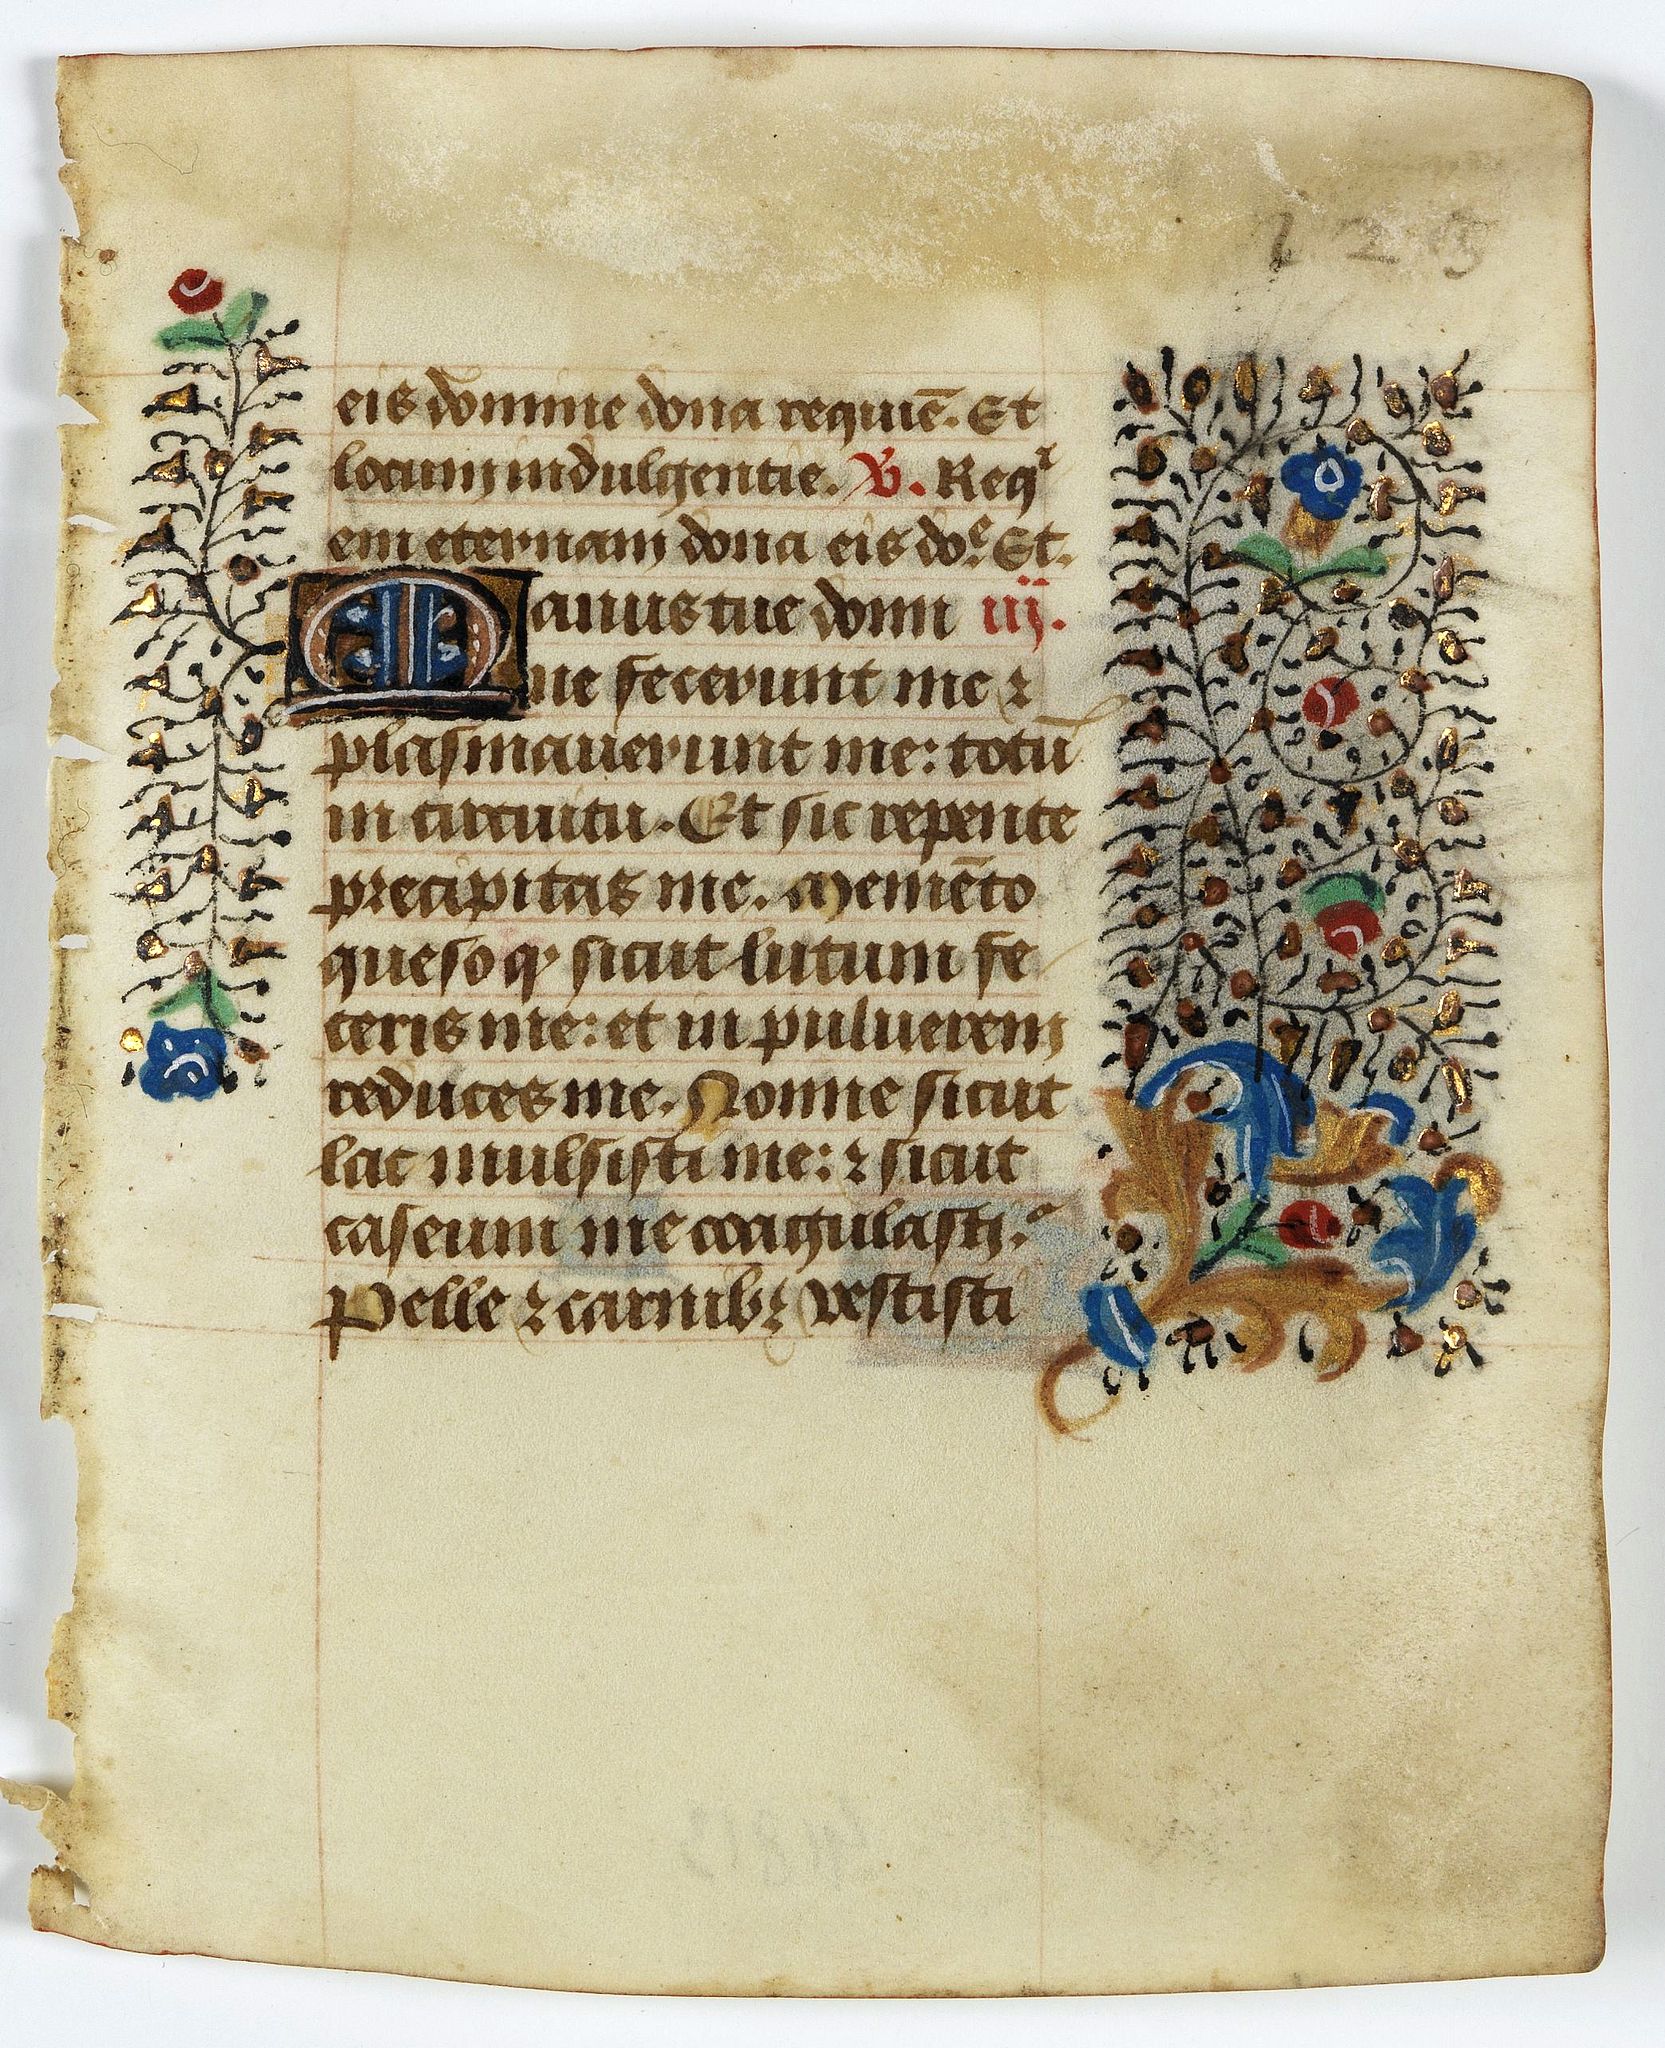 129
eis domine dona requiē. Et
locum indulgentie. ℣. Requi
em eternam dona eis doe. Et.
Manus tue domi iij.
ne fecerunt me ⁊
plasmauerunt me: totū
in circuitu. Et sic repente
precipitas me. Memēto
queso ꝙ sicut lutum fe
ceris me: et in puluerem
reduces me. Nonne sicut
lac mulsisti me: ⁊ sicut
caseum me coagulasti.
Pelle ⁊ carnibꝫ vestisti